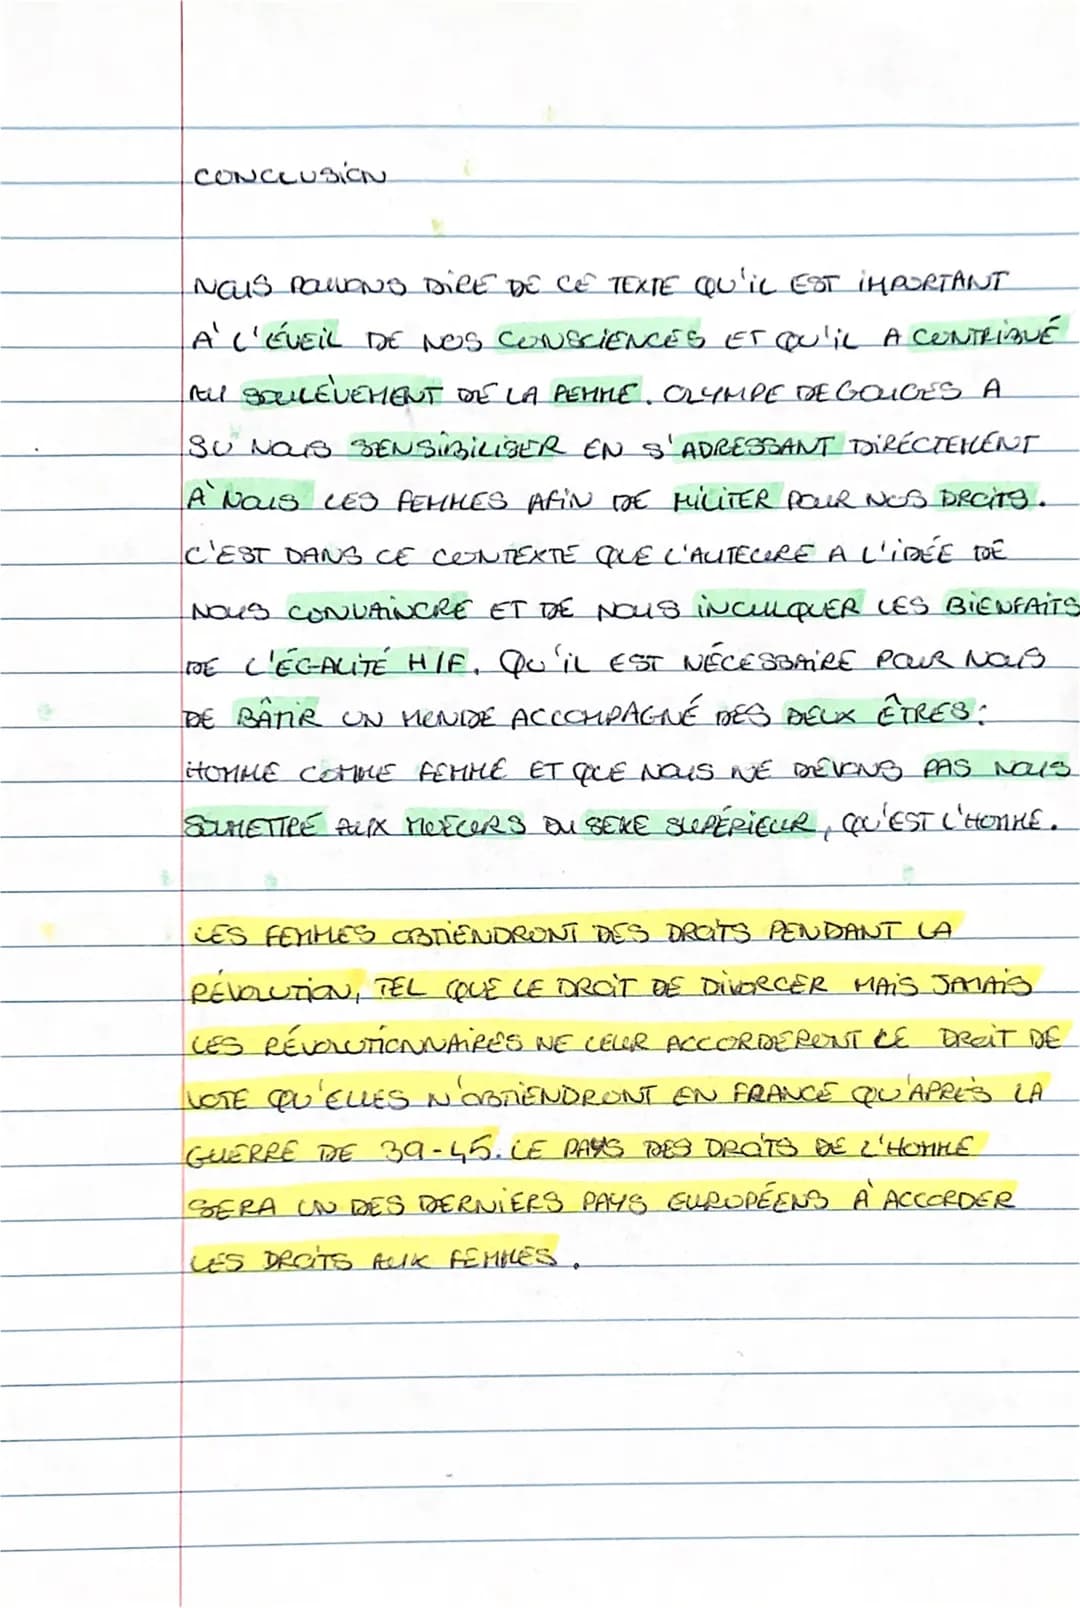 CONCLUSION
NOUS POUVONS DIRE DE CE TEXTE QU'IL EST IMPORTANT
À L'ÉVEIL DE NOS CONSCIENCES ET QU'IL A CONTRIBUÉ
AU SOULÈVEMENT DE LA FEMME. OLYMPE DE GOUGES A
SU NOUS SENSIBILISER EN S'ADRESSANT DIRECTEMENT
À NOUS LES FEMMES AFIN DE MILITER POUR NOS DROITS.
C'EST DANS CE CONTEXTE QUE L'AUTEURE A L'IDÉE DE
NOUS CONVAINCRE ET DE NOUS INCULQUER LES BIENFAITS
DE L'ÉGALITÉ H/F. QU'IL EST NÉCESSAIRE POUR NOUS
DE BÂTIR UN MONDE ACCOMPAGNÉ DES DEUX ÊTRES:
HOMME COMME FEMME ET QUE NOUS NE DEVONS PAS NOUS
SOUMETTRE AUX MOEURS DU SEXE SUPÉRIEUR, QU'EST L'HOMME.
LES FEMMES OBTIENDRONT DES DROITS PENDANT LA
RÉVOLUTION, TEL QUE LE DROIT DE DIVORCER MAIS JAMAIS
LES RÉVOLUTIONNAIRES NE LEUR ACCORDERONT LE DROIT DE
VOTE QU'ELLES N'OBTIENDRONT EN FRANCE QU'APRÈS LA
GUERRE DE 39-45. LE PAYS DES DROITS DE L'HOMME
SERA UN DES DERNIERS PAYS EUROPÉENS À ACCORDER
LES DROITS AUX FEMMES.